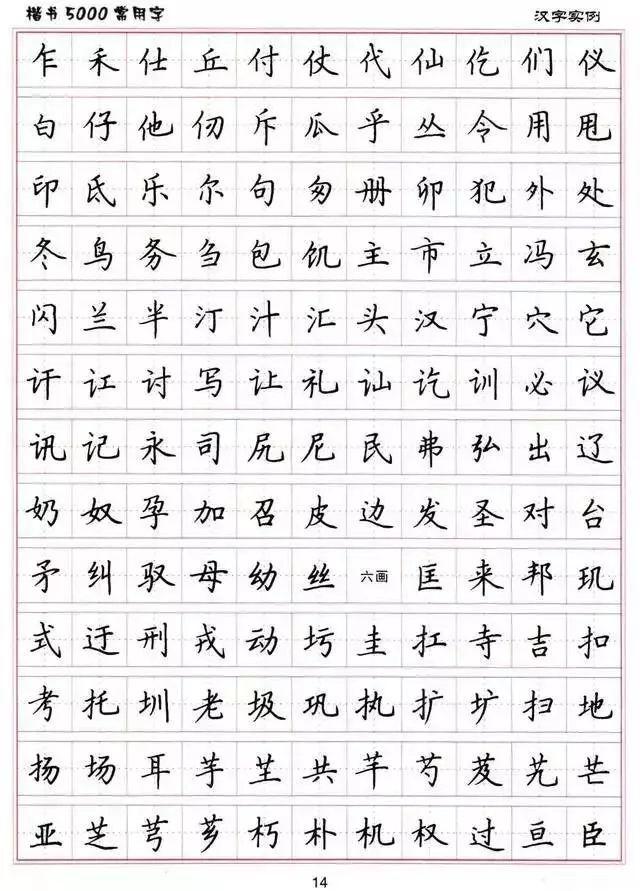 楷书5000常用字 汉字实例
乍 禾 仕 丘 付 仗 代 仙 仡 们 仪
白 仔 他 仞 斥 瓜 乎 丛 令 用 甩
印 氐 乐 尔 句 匆 册 卯 犯 外 处
冬 鸟 务 刍 包 饥 主 市 立 冯 玄
闪 兰 半 汀 汁 汇 头 汉 宁 穴 它
讦 讧 讨 写 让 礼 讪 讫 训 必 议
讯 记 永 司 尻 尼 民 弗 弘 出 辽
奶 奴 孕 加 召 皮 边 发 圣 对 台
矛 纠 驭 母 幼 丝 六画 匡 来 邦 玑
式 迂 刑 戎 动 圬 圭 扛 寺 吉 扣
考 托 圳 老 圾 巩 执 扩 圹 扫 地
扬 场 耳 芋 芏 共 芊 芍 芨 艽 芒
亚 芝 芎 芗 朽 朴 机 权 过 亘 臣
14